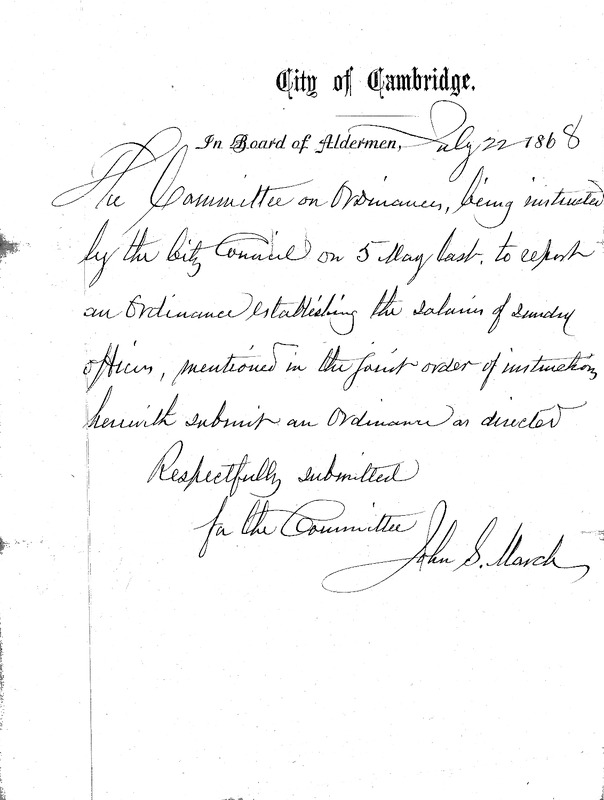 City of Cambridge.
In Board of Aldermen, July 22 1868
The Committee on Ordinances, being instructed
by the City Council on 5 May last, to report
an Ordinance establishing the salaries of sundry
officers, mentioned in the joint order of instructions
herewith submit an Ordinance as directed
Respectfully submitted
for the Committee
John S. March